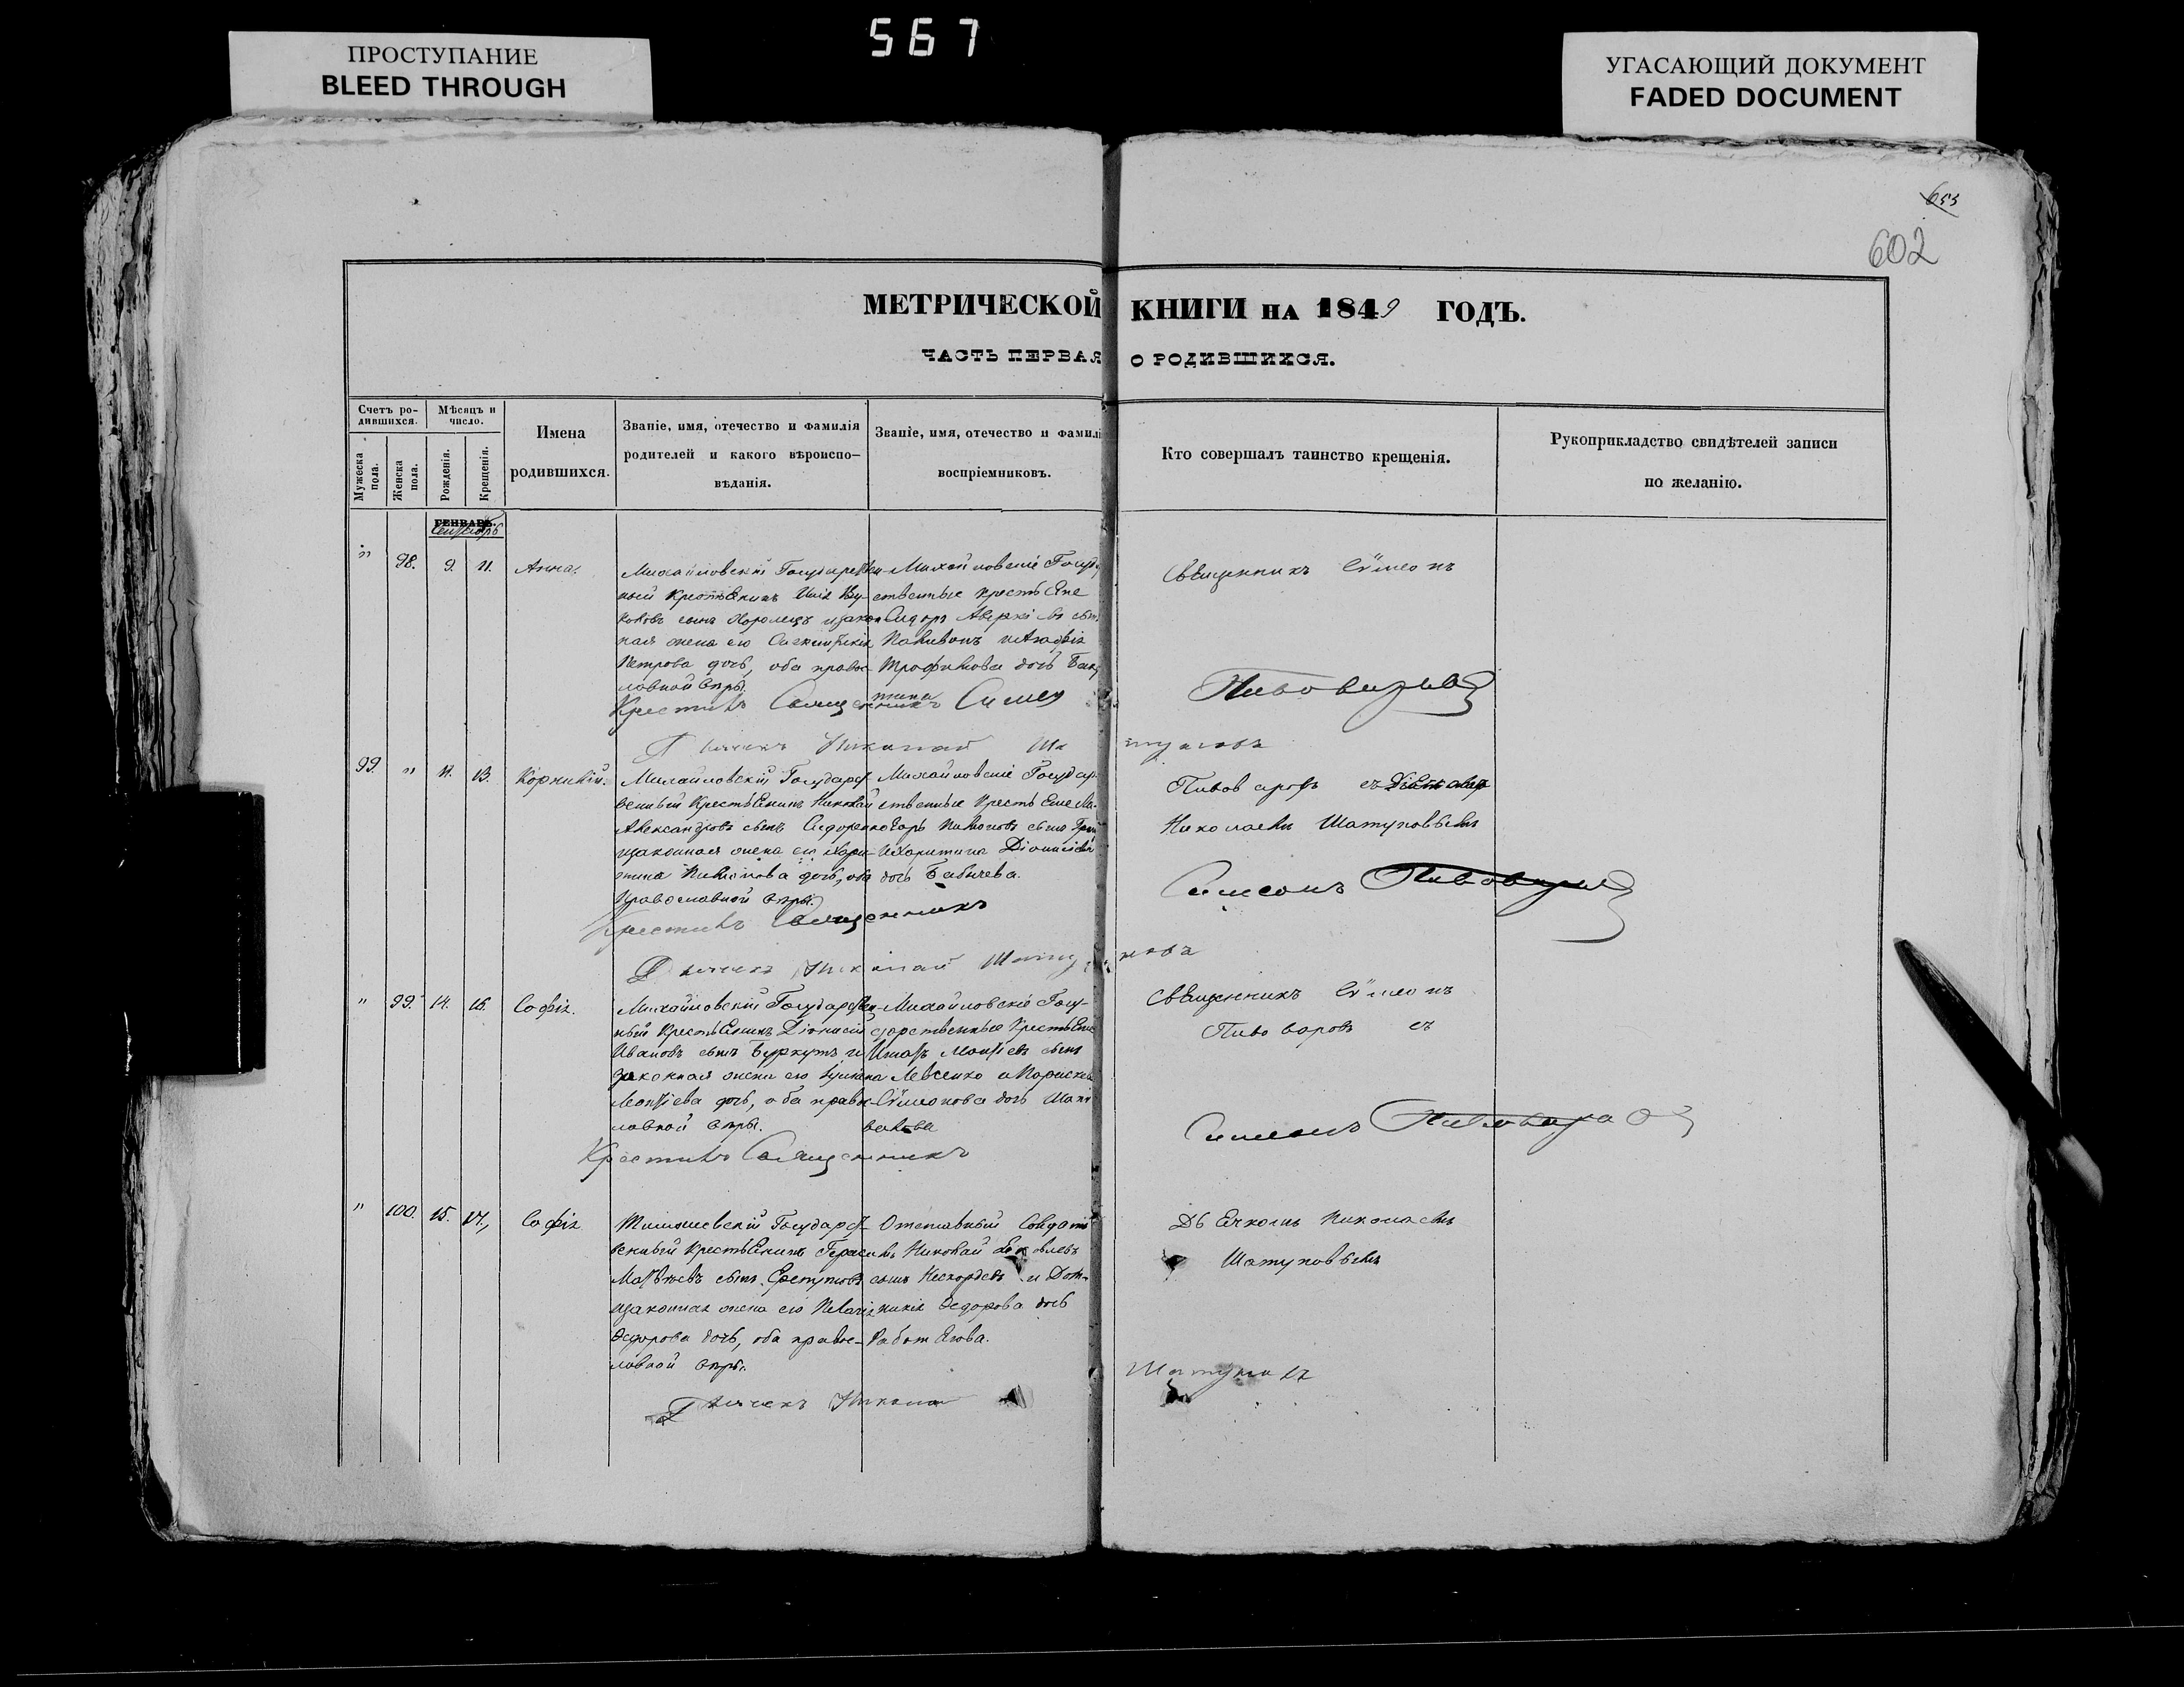 567
ПРОСТУПАНИЕ
BLEED THROUGH
УГАСАЮЩИЙ ДОКУМЕНТ
FADED DOCUMENT
655
602
МЕТРИЧЕСКОЙ КНИГИ НА 1849 ГОДЪ.
ЧАСТЬ ПЕРВАЯ О РОДИВШИХСЯ.
Счетъ ро-
дившихся.
Мужеска пола.
Женска пола.
Мѣсяцъ и
число.
Рожденія.
Крещенія.
Имена
родившихся.
Званіе, имя, отечество и фамилія
родителей и какого вѣроиспо-
вѣданія.
Званіе, имя, отечество и фамилі
воспріемниковъ.
Кто совершалъ таинство крещенія.
Рукоприкладство свидѣтелей записи
по желанію.
ГЕНВАРЬ.
Сентябрь
" 98. 9. 11. Анна.
Михайловскій Государствен-
ный крестьянинъ
сынъ Королецъ и закон
ная жена его
Петрова дочь, оба правос-
лавной вѣры.
Михайловскіе Госуд
ственные крестьяне
Сидоръ Аверкіевъ сынъ
Трофимова дочь
Священникъ Сѵмеонъ
Пивоваровъ
Крестилъ Священникъ Симеон
Дьячекъ Николай Шатуновъ
99. " 11. 13. Корнилій.
Михайловскій Государст-
венный крестьянинъ Николай
Александровъ сынъ Сидоренко
и законная жена его Хари-
тина Филипова дочь, оба
православной вѣры.
Михайловскіе Государ
ственные крестьяне
и Харитина Діонисіева
дочь Бабичева.
Пивоваровъ съ Дьячкомъ
Николаемъ Шатуновымъ
Крестилъ Священникъ
Симеонъ Пивоваровъ
Дьячекъ Николай Шатуновъ
" 99. 14. 16. Софія.
Михайловскій Государствен-
ный крестьянинъ Діонисій
Ивановъ сынъ Буркутъ и
законная жена его
Моѵсіева дочь, оба правос-
лавной вѣры.
Михайловскіе Госу-
дарственные крестьяне
Игнатъ Моѵсіевъ сынъ
Левченко и Параскева
Сѵмеонова дочь
Священникъ Сѵмеонъ
Пивоваровъ съ
Крестилъ Священникъ
Симеонъ Пивоваровъ
" 100. 15. 17. Софія
Тимошевскій Государст-
венный крестьянинъ Герасимъ
Матвѣевъ сынъ
и законная жена его Пелагія
Ѳедорова дочь, оба правос-
лавной вѣры.
Отставный Солдатъ
Николай Яковлевъ
сынъ и Дом-
никія Ѳедорова дочь
Работягова.
Дьячкомъ Николаемъ
Шатуновымъ
Дьячекъ Николай
Шатуновъ